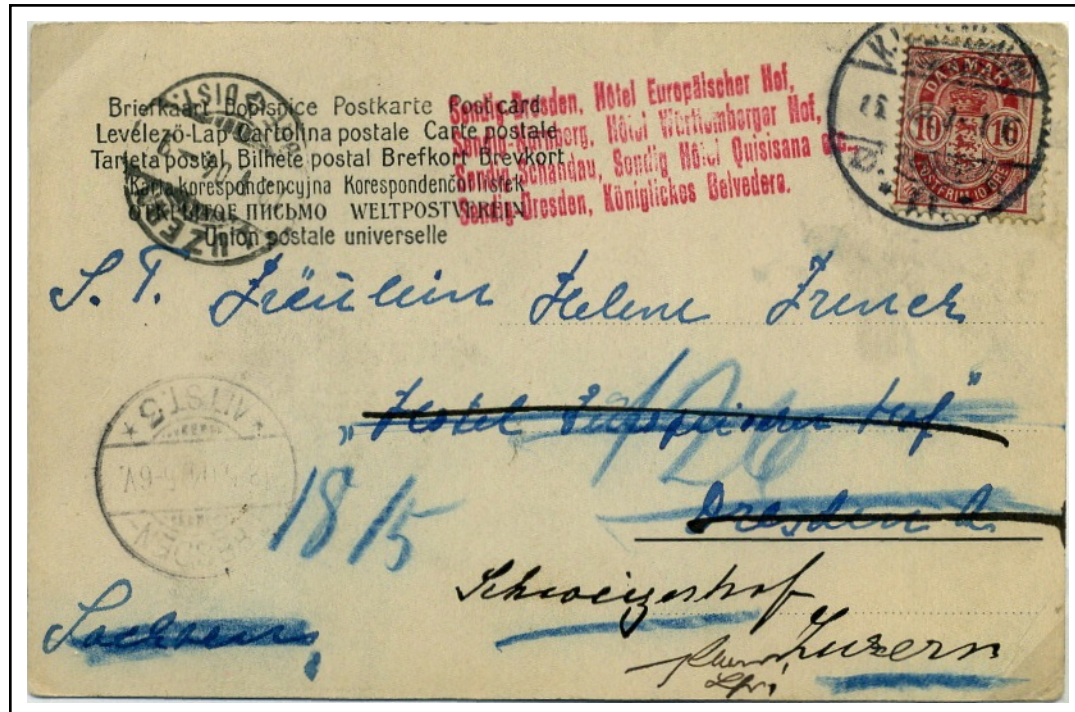 Briefkaart Dopisnice Postkarte Post card
Levelező-Lap Cartolina postale Carte postale
Tarjeta postal, Bilhete postal Brefkort Brevkort
Karta korespondencyjna Korespondenční lístek
ОТКРЫТОЕ ПИСЬМО WELTPOSTVEREIN
Union postale universelle
Sendig-Dresden, Hôtel Europäischer Hof,
Sendig-Nürnberg, Hôtel Württemberger Hof,
Sendig-Schandau, Sendig Hôtel Quisisana etc.
Sendig-Dresden, Königlickes Belvedere.
DANMARK
10 10
POSTFRIM. 10 ØRE
LUZERN
S. T. Fräulein Helene French
„Hotel Europäischen Hof"
Dresden A.
ALTST. 5
5-6V.
DRESDEN
18/5
126
Schweizerhof
Luzern
Sachsen